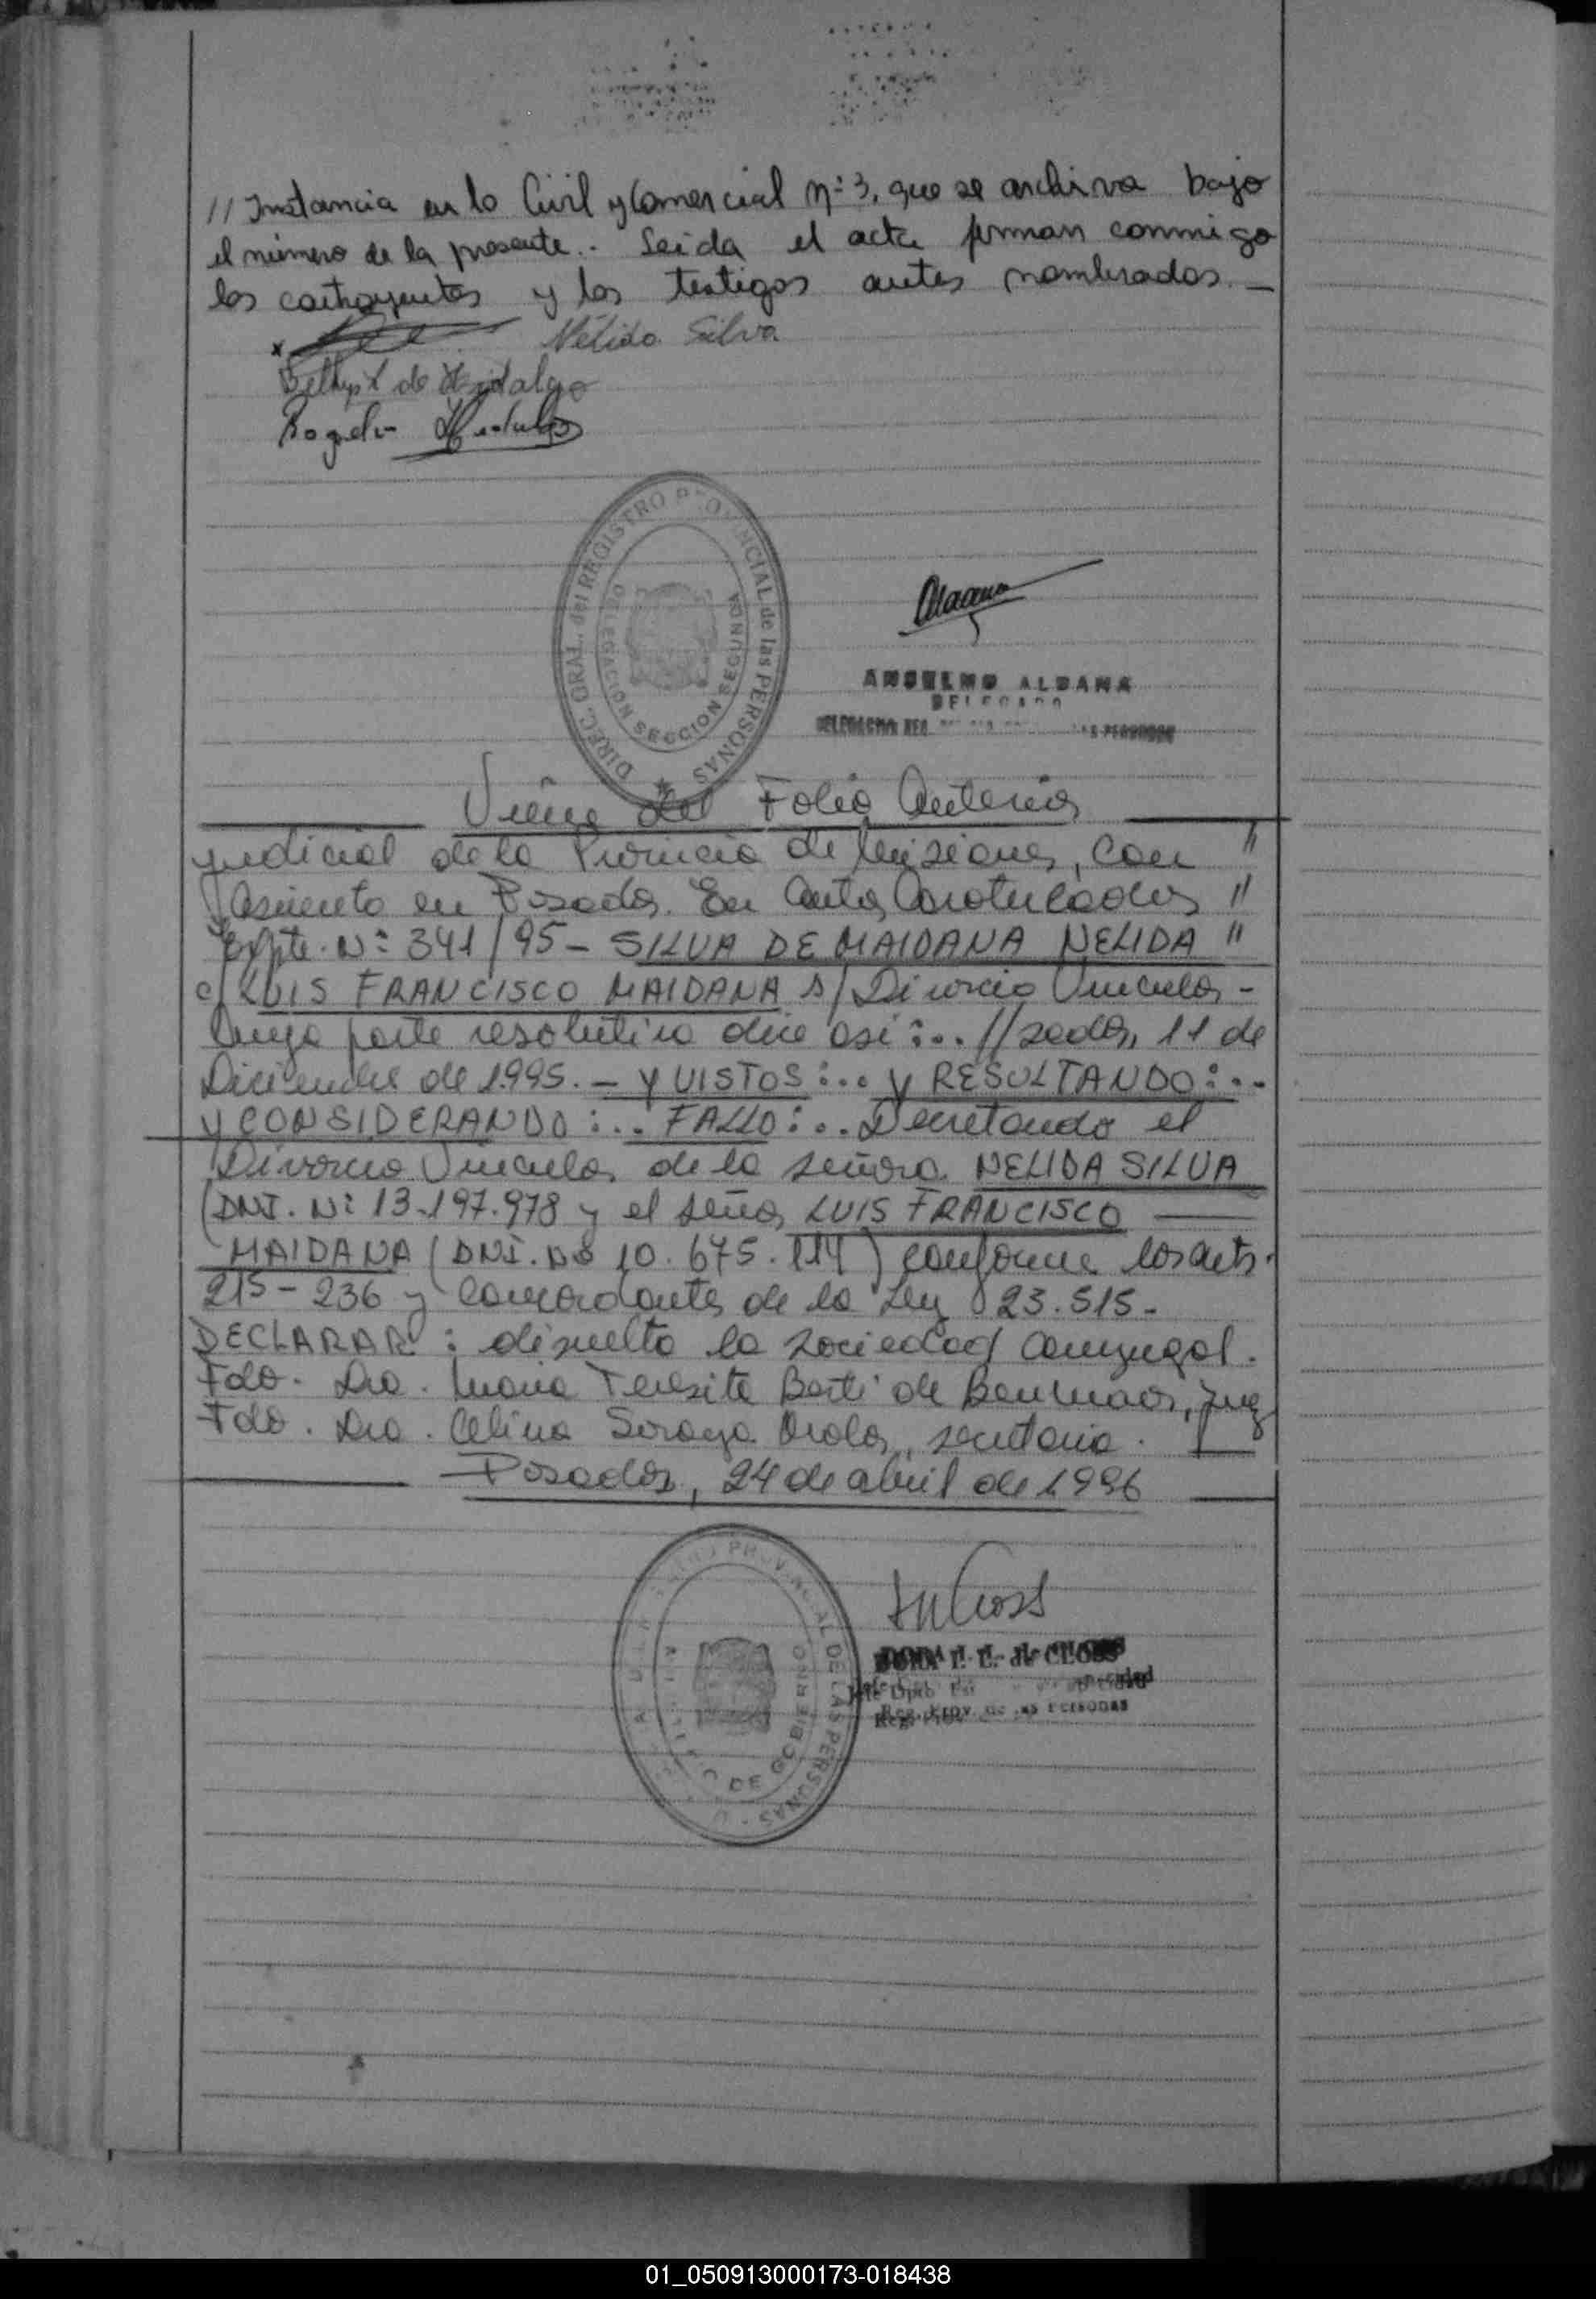 // Instancia en lo Civil y Comercial Nº 3, que se archiva bajo
el número de la presente.- Leída el acta firman conmigo
los contrayentes y los testigos antes nombrados. —
Nélida Silva
de Hidalgo
Rogelio Hidalgo
DIREC. GRAL. del REGISTRO PROVINCIAL de las PERSONAS
DELEGACION SECCION SEGUNDA
ANSELMO ALDANA
DELEGADO
Viene del Folio Anterior
judicial de la Provincia de Misiones, con "
Asiento en Posadas. En Autos Caratulados "
Expte. Nº 341/95 - SILVA DE MAIDANA NELIDA "
c/ LUIS FRANCISCO MAIDANA s/ Divorcio Vincular -
Cuya parte resolutiva dice así:... //sadas, 11 de
Diciembre de 1.995. - Y VISTOS:... Y RESULTANDO:...
Y CONSIDERANDO:... FALLO:... Decretando el
Divorcio Vincular de la señora NELIDA SILVA
(DNI. Nº 13.197.978 y el señor LUIS FRANCISCO
MAIDANA (DNI. Nº 10.675.114) conforme los arts.
215 - 236 y concordantes de la Ley 23.515 -
DECLARAR: disuelta la sociedad conyugal.
Fdo. Dra. María Teresita de Juez
Fdo. Dra. Celina Soraya secretaria.
Posadas, 24 de abril de 1996
PROVINCIAL DE LAS PERSONAS
DE GOBIERNO
DORA E. de CLOSS
Jefe Dpto.
Reg. Prov. de las Personas
01_050913000173-018438